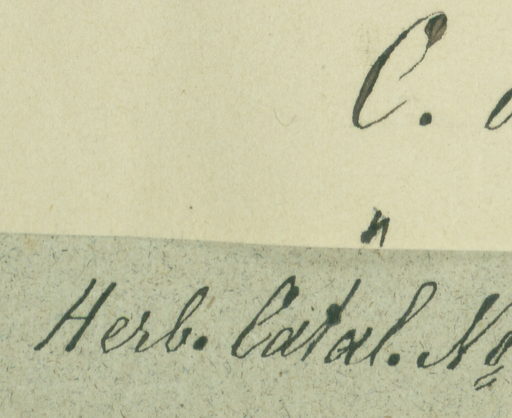 C.
"
Herb. Catal. No